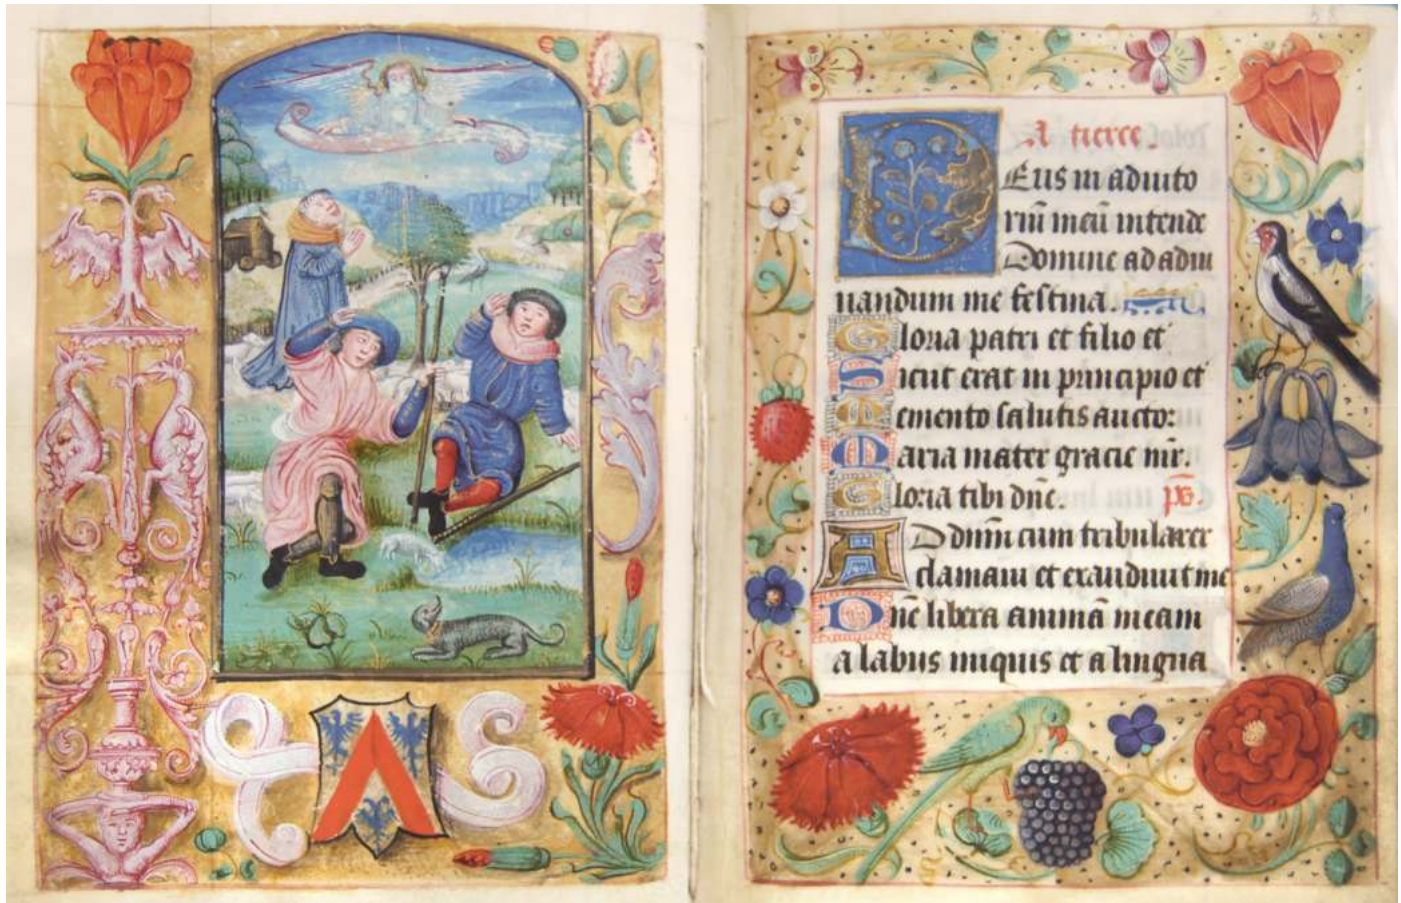 A tierce.
Deus in adiuto
riũ meũ intende
Domine ad adiu
uandum me festina.
Gloria patri et filio et
Sicut erat in principio et
Memento salutis auctor:
Maria mater gracie mr̃.
Gloria tibi dñe. ps̃.
AD dñm cum tribularer
clamaui et exaudiuit me
Dñe libera animã meam
a labiis iniquis et a lingua